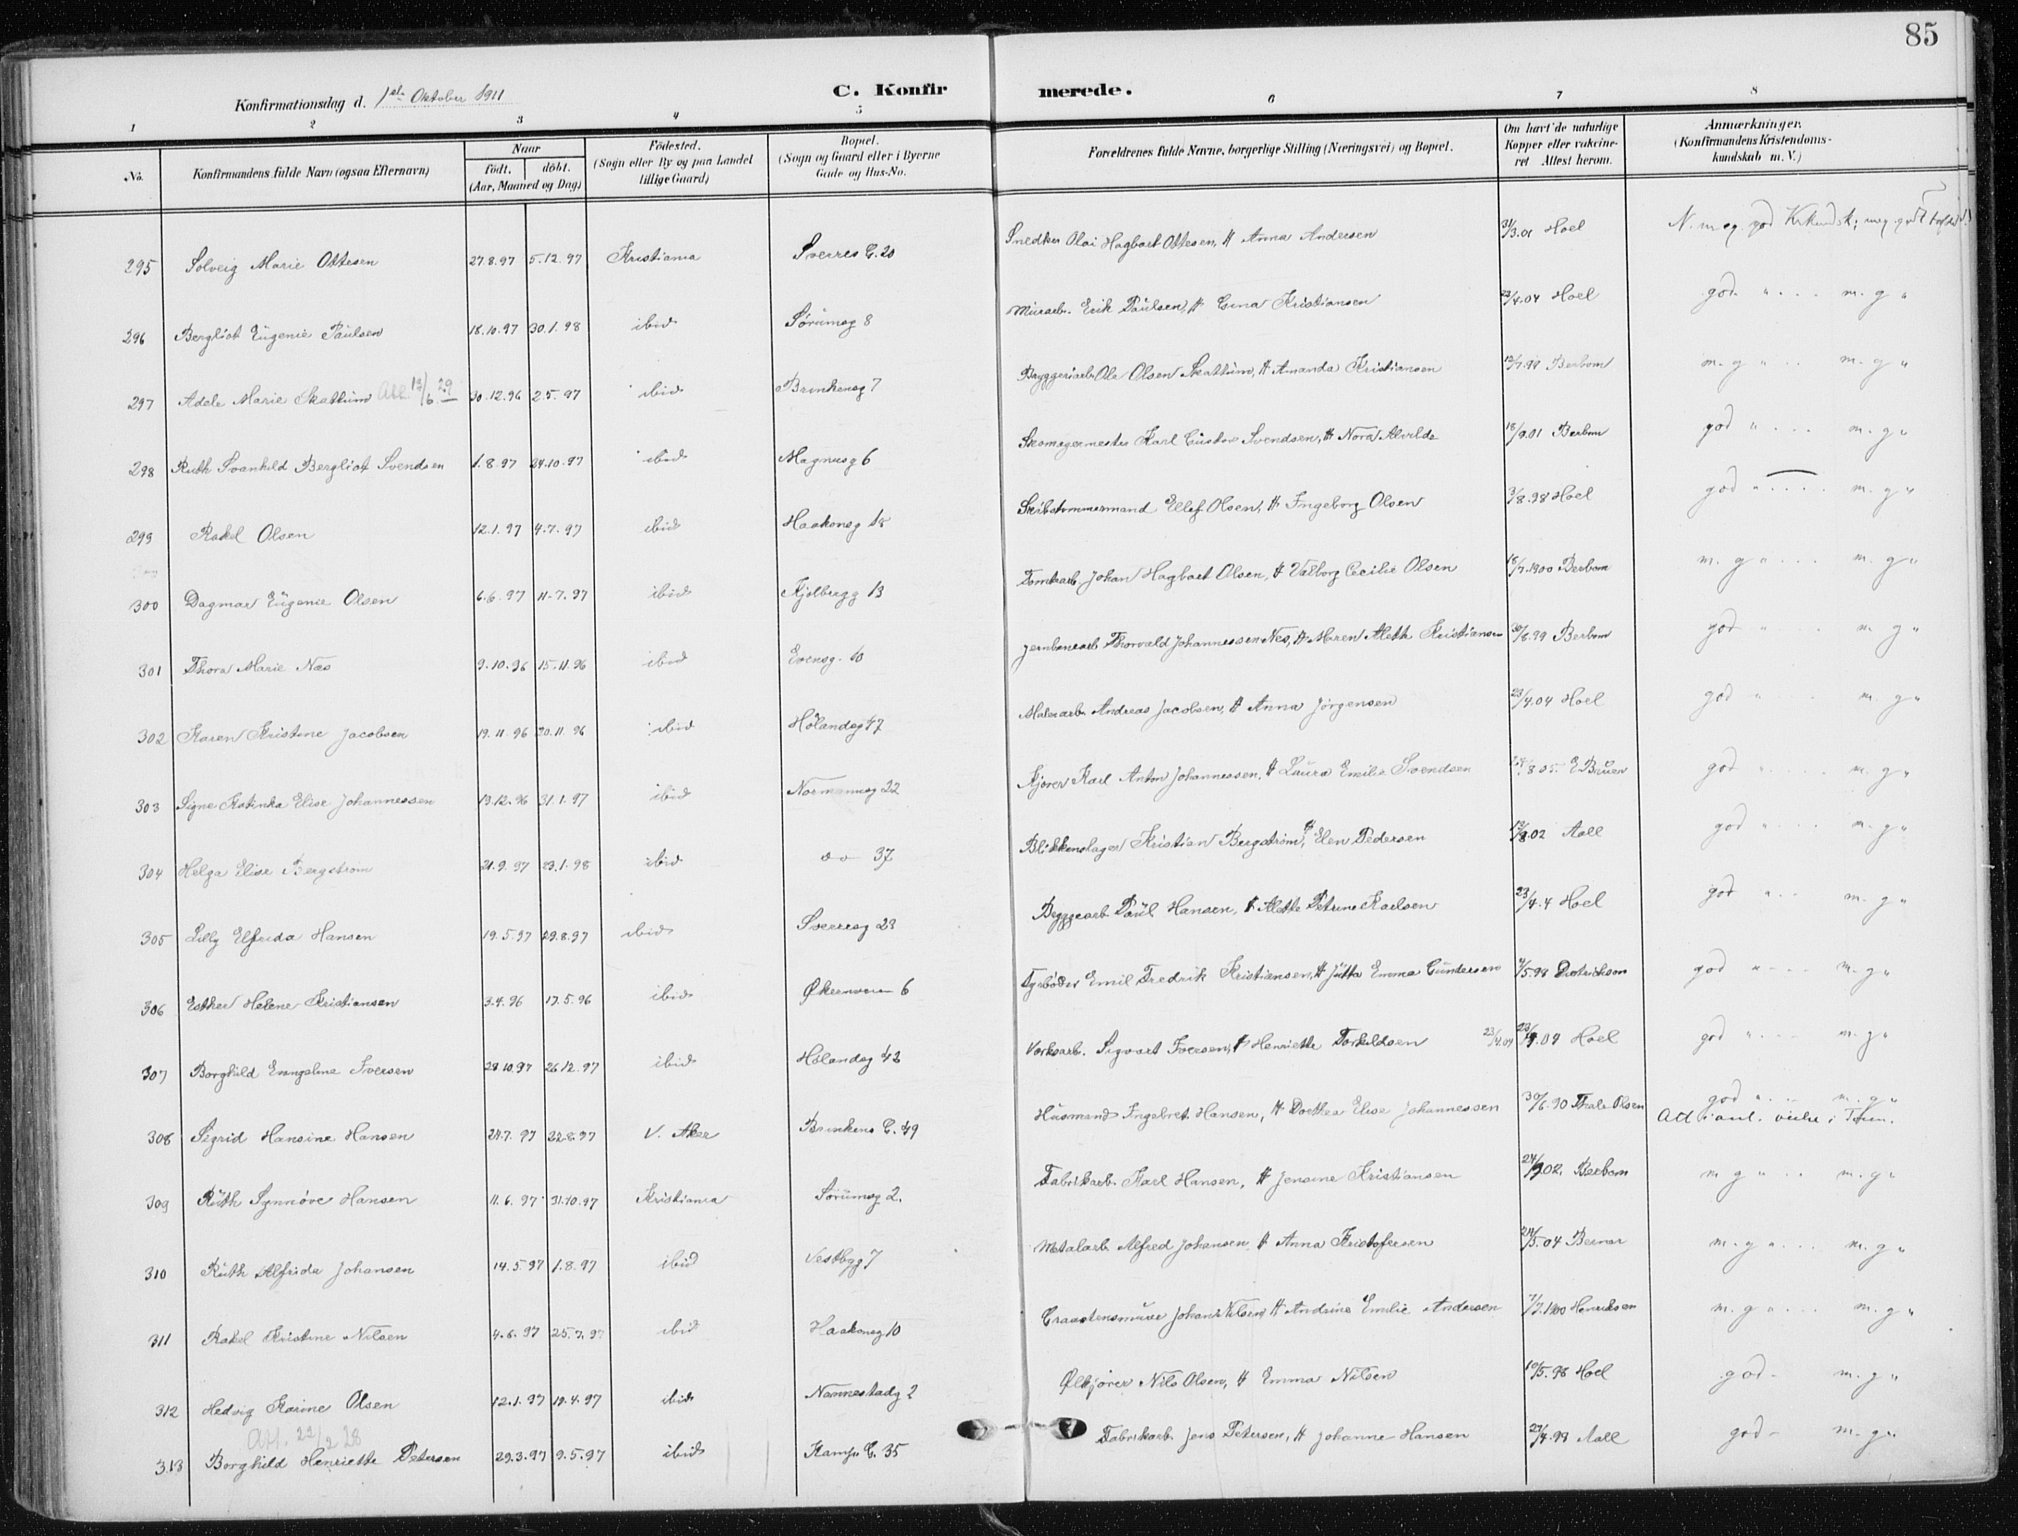 85
Konfirmationsdag d. 1ste Oktober 1911 C. Konfirmerede.
1 2 3 4 5 6 7 8
No. Konfirmandens fulde Navn (ogsaa Efternavn) Naar født. døbt. (Aar, Maaned og Dag) Fødested. (Sogn eller By og paa Landet tillige Gaard) Bopæl. (Sogn og Gaard eller i Byerne Gade og Hus-No. Forældrenes fulde Navne, borgerlige Stilling (Næringsvei) og Bopæl. Om havt de naturlige Kopper eller vakcineret Attest herom. Anmærkninger. (Konfirmandens Kristendomskundskab m. V.)
295 Solveig Marie Ottesen 27.8.97 5.12.97 Kristiania Sverres G. 20 Snedker Olai Hagbart Ottesen, H Anna Andersen 31/3.01 Hoel
296 Bergliot Eugenie Paulsen 18.10.97 30.1.98 ibid Sørumsg 8 Murarb. Erik Paulsen, H Gina Kristiansen 23/4.04 Hoel god " m. g "
297 Adele Marie Skattum Att. 12/6 29 30.12.96 2.5.97 ibid Brinkensg 7 Bryggeriarb. Ole Olsen Skattum, H Amanda Kristiansen 12/7.99 Berbom m. g " m. g "
298 Ruth Svanhild Bergliot Svendsen 1.8.97 24.10.97 ibid Magnusg 6 Skomagermester Karl Gustav Svendsen, H Nora Alvilde 18/9.01 Berbom god " m. g "
299 Rakel Olsen 12.1.97 4.7.97 ibid Haakonsg 18 Skibstømmermand Ellef Olsen, H Ingeborg Olsen 3/8.98 Hoel god " m. g "
300 Dagmar Eugenie Olsen 6.6.97 11.7.97 ibid Kjølbergg 13 Tomtearb. Johan Hagbart Olsen, H Valborg Cecilie Olsen 18/7.1900 Berbom m. g " m. g "
301 Thora Marie Næs 9.10.96 15.11.96 ibid Evensg. 10 Jernbanearb Thorvald Johannessen Nes, H Maren Aleth Kristiansen 30/6.99 Berbom god m. g "
302 Karen Kristine Jacobsen 19.11.96 20.11.96 ibid Hølandsg 47 Malerarb. Andreas Jacobsen, H Anna Jørgensen 23/4.04 Hoel god " m. g "
303 Signe Katinka Elise Johannessen 13.12.96 31.1.97 ibid Normannsg 22 Kjører Karl Anton Johannessen, H Laura Emilie Svendsen 8 05. E Bruen god " m. g "
304 Helga Elise Bergstrøm 21.9.97 23.1.98 ibid do 37 Blikkenslager Kristian Bergstrøm, H Elen Pedersen 12/8.02 Aall god " m. g "
305 Lilly Elfrida Hansen 19.5.97 29.8.97 ibid Sverresg 23 Byggearb Paul Hansen, H Alette Petrine Karlsen 23/4.4 Hoel god " m. g "
306 Esther Helene Kristiansen 3.4.96 17.5.96 ibid Økernveien 6 Fyrbøder Emil Fredrik Kristiansen, H Jutta Emma Gundersen 4/5.98 Dietrichson god " m. g "
307 Borghild Evangeline Iversen 28.10.97 26.12.97 ibid Hølandsg 43 Verksarb. Sigvart Iversen, H Henriette Torkildsen 23/4.04 23/4.04 Hoel god " m. g "
308 Sigrid Hansine Hansen 24.7.97 22.8.97 V. Aker Brinkens G. 49 Husmand Ingebret Hansen, H Dorthea Elise Johannessen 30/6.90 Thale Olsen god " m. g "
309 Ruth Synnøve Hansen 11.6.97 31.10.97 Kristiania Sørumsg 2. Fabrikarb. Karl Hansen, H Jensine Kristiansen 24/9.02. Berbom m g " m. g "
310 Ruth Alfrida Johansen 14.5.97 1.8.97 ibid Vestbyg 7 Metalarb Alfred Johansen H Anna Kristofersen 24/5.04 Berner m. g " m. g "
311 Rakel Kristine Nilsen 4.6.97 25.7.97 ibid Haakonsg 10 Graastensmurer Johan Nilsen, H Andrine Emilie Andersen 7/7.1900 Henriksen m. g " m. g "
312 Hedvig Karine Olsen 12.1.97 19.4.97 ibid Nannestadg 2 Ølkjører Nils Olsen, H Emma Nilsen 10/5.98 Hoel god - m. g "
313 Att. 22/2 28 Borghild Henriette Petersen 29.3.97 9.5.97 ibid Kampe G. 35 Fabrikarb. Jens Petersen, H Johanne Hansen 27/4.99 Aall god - m. g "